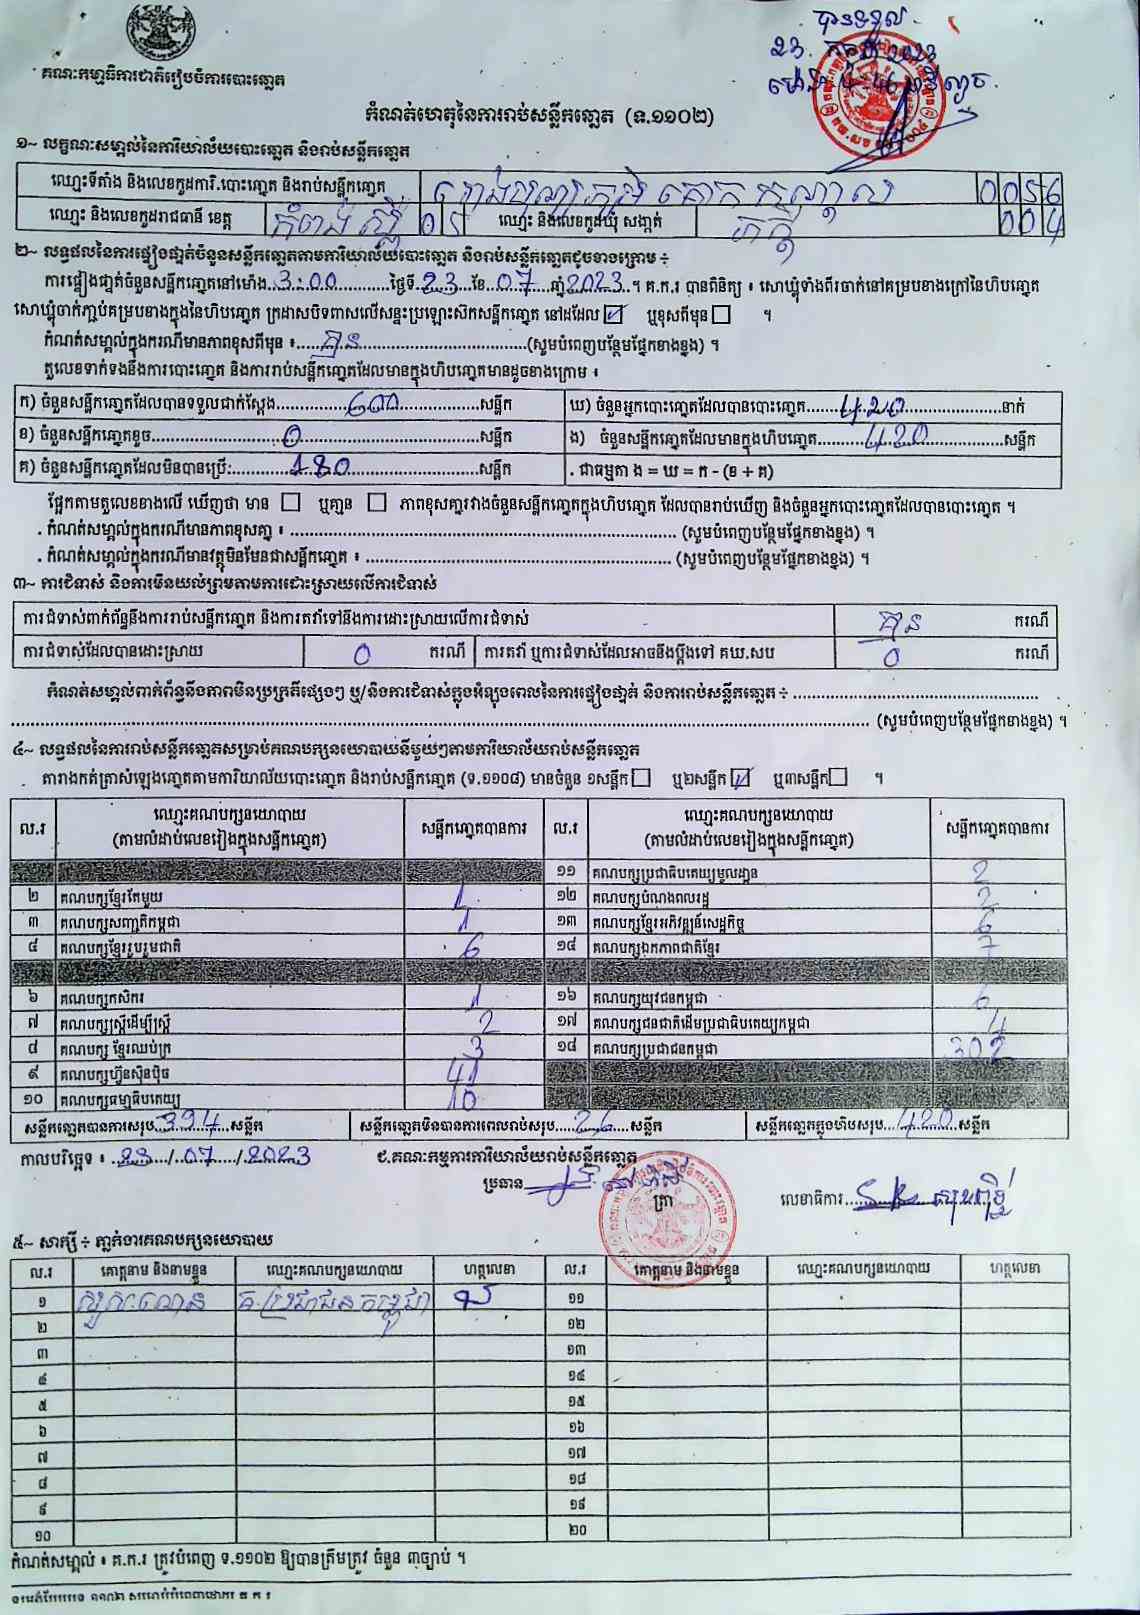 បានទទួល
23
គណៈកម្មាធិការជាតិរៀបចំការបោះឆ្នោត
កំណត់ហេតុនៃការរាប់សន្លឹកឆ្នោត (ទ.១១០២)
១~ លក្ខណៈសម្គាល់នៃការិយាល័យបោះឆ្នោត និងរាប់សន្លឹកឆ្នោត
ឈ្មោះទីតាំង និងលេខកូដការិ.បោះឆ្នោត និងរាប់សន្លឹកឆ្នោត ភូមិ គោក កណ្តាល 0056
ឈ្មោះ និងលេខកូដរាជធានី ខេត្ត កំពង់ស្ពឺ 05 ឈ្មោះ និងលេខកូដឃុំ សង្កាត់ 004
២~ លទ្ធផលនៃការផ្ទៀងផ្ទាត់ចំនួនសន្លឹកឆ្នោតតាមការិយាល័យបោះឆ្នោត និងរាប់សន្លឹកឆ្នោតដូចខាងក្រោម ÷
ការផ្ទៀងផ្ទាត់ចំនួនសន្លឹកឆ្នោតនៅម៉ោង 3:00 ថ្ងៃទី 23 ខែ 07 ឆ្នាំ 2023 ។ គ.ក.រ បានពិនិត្យ ៖ សោឃ្លុំទាំងពីរចាក់នៅគម្របខាងក្រៅនៃហិបឆ្នោត
សោឃ្លុំចាក់ភ្ជាប់គម្របខាងក្នុងនៃហិបឆ្នោត ក្រដាសបិទពាសលើសន្ទះប្រឡោះស៊កសន្លឹកឆ្នោត នៅដដែល ☑ ឬខុសពីមុន ☐ ។
កំណត់សម្គាល់ក្នុងករណីមានភាពខុសពីមុន ៖ គ្មាន (សូមបំពេញបន្ថែមផ្នែកខាងខ្នង) ។
តួលេខទាក់ទងនឹងការបោះឆ្នោត និងការរាប់សន្លឹកឆ្នោតដែលមានក្នុងហិបឆ្នោតមានដូចខាងក្រោម ៖
ក) ចំនួនសន្លឹកឆ្នោតដែលបានទទួលជាក់ស្តែង 600 សន្លឹក ឃ) ចំនួនអ្នកបោះឆ្នោតដែលបានបោះឆ្នោត 420 នាក់
ខ) ចំនួនសន្លឹកឆ្នោតខូច 0 សន្លឹក ង) ចំនួនសន្លឹកឆ្នោតដែលមានក្នុងហិបឆ្នោត 420 សន្លឹក
គ) ចំនួនសន្លឹកឆ្នោតដែលមិនបានប្រើ: 180 សន្លឹក . ជាធម្មតា ង = ឃ = ក - (ខ + គ)
ផ្អែកតាមតួលេខខាងលើ ឃើញថា មាន ☐ ឬគ្មាន ☐ ភាពខុសគ្នារវាងចំនួនសន្លឹកឆ្នោតក្នុងហិបឆ្នោត ដែលបានរាប់ឃើញ និងចំនួនអ្នកបោះឆ្នោតដែលបានបោះឆ្នោត ។
. កំណត់សម្គាល់ក្នុងករណីមានភាពខុសគ្នា ៖ (សូមបំពេញបន្ថែមផ្នែកខាងខ្នង) ។
. កំណត់សម្គាល់ក្នុងករណីមានវត្ថុមិនមែនជាសន្លឹកឆ្នោត ៖ (សូមបំពេញបន្ថែមផ្នែកខាងខ្នង) ។
៣~ ការជំទាស់ និងការមិនយល់ព្រមតាមការដោះស្រាយលើការជំទាស់
ការជំទាស់ពាក់ព័ន្ធនឹងការរាប់សន្លឹកឆ្នោត និងការតវ៉ាទៅនឹងការដោះស្រាយលើការជំទាស់ គ្មាន ករណី
ការជំទាស់ដែលបានដោះស្រាយ 0 ករណី ការតវ៉ា ឬការជំទាស់ដែលអាចនឹងប្តឹងទៅ គឃ.សប 0 ករណី
កំណត់សម្គាល់ពាក់ព័ន្ធនឹងភាពមិនប្រក្រតីផ្សេងៗ ឬ/និងការជំទាស់ក្នុងអំឡុងពេលនៃការផ្ទៀងផ្ទាត់ និងការរាប់សន្លឹកឆ្នោត ÷
(សូមបំពេញបន្ថែមផ្នែកខាងខ្នង) ។
៤~ លទ្ធផលនៃការរាប់សន្លឹកឆ្នោតសម្រាប់គណបក្សនយោបាយនីមួយៗតាមការិយាល័យរាប់សន្លឹកឆ្នោត
តារាងកត់ត្រាសំឡេងឆ្នោតតាមការិយាល័យបោះឆ្នោត និងរាប់សន្លឹកឆ្នោត (ទ.១១០៨) មានចំនួន ១សន្លឹក ☐ ឬ២សន្លឹក ☑ ឬ៣សន្លឹក ☐ ។
ល.រ ឈ្មោះគណបក្សនយោបាយ (តាមលំដាប់លេខរៀងក្នុងសន្លឹកឆ្នោត) សន្លឹកឆ្នោតបានការ ល.រ ឈ្មោះគណបក្សនយោបាយ (តាមលំដាប់លេខរៀងក្នុងសន្លឹកឆ្នោត) សន្លឹកឆ្នោតបានការ
១១ គណបក្សប្រជាធិបតេយ្យមូលដ្ឋាន 2
២ គណបក្សខ្មែរតែមួយ 1 ១២ គណបក្សបំណងពលរដ្ឋ 2
៣ គណបក្សសញ្ជាតិកម្ពុជា 1 ១៣ គណបក្សខ្មែរអភិវឌ្ឍន៍សេដ្ឋកិច្ច 6
៤ គណបក្សខ្មែររួបរួមជាតិ 6 ១៤ គណបក្សឯកភាពជាតិខ្មែរ 7
៦ គណបក្សកសិករ 1 ១៦ គណបក្សយុវជនកម្ពុជា 6
៧ គណបក្សស្ត្រីដើម្បីស្ត្រី 2 ១៧ គណបក្សជនជាតិដើមប្រជាធិបតេយ្យកម្ពុជា 4
៨ គណបក្ស ខ្មែរឈប់ក្រ 3 ១៨ គណបក្សប្រជាជនកម្ពុជា 302
៩ គណបក្សហ្វ៊ុនស៊ិនប៉ិច 41
១០ គណបក្សធម្មាធិបតេយ្យ 10
សន្លឹកឆ្នោតបានការសរុប 394 សន្លឹក សន្លឹកឆ្នោតមិនបានការពេលរាប់សរុប 26 សន្លឹក សន្លឹកឆ្នោតក្នុងហិបសរុប 420 សន្លឹក
កាលបរិច្ឆេទ ៖ 23/07/2023 ជ.គណៈកម្មការការិយាល័យរាប់សន្លឹកឆ្នោត
ប្រធាន ត្រា លេខាធិការ
៥~ សាក្សី ÷ ភ្នាក់ងារគណបក្សនយោបាយ
ល.រ គោត្តនាម និងនាមខ្លួន ឈ្មោះគណបក្សនយោបាយ ហត្ថលេខា ល.រ គោត្តនាម និងនាមខ្លួន ឈ្មោះគណបក្សនយោបាយ ហត្ថលេខា
១ គ.ប្រជាជនកម្ពុជា ១១
២ ១២
៣ ១៣
៤ ១៤
៥ ១៥
៦ ១៦
៧ ១៧
៨ ១៨
៩ ១៩
១០ ២០
កំណត់សម្គាល់ ៖ គ.ក.រ ត្រូវបំពេញ ទ.១១០២ ឱ្យបានត្រឹមត្រូវ ចំនួន ៣ច្បាប់ ។